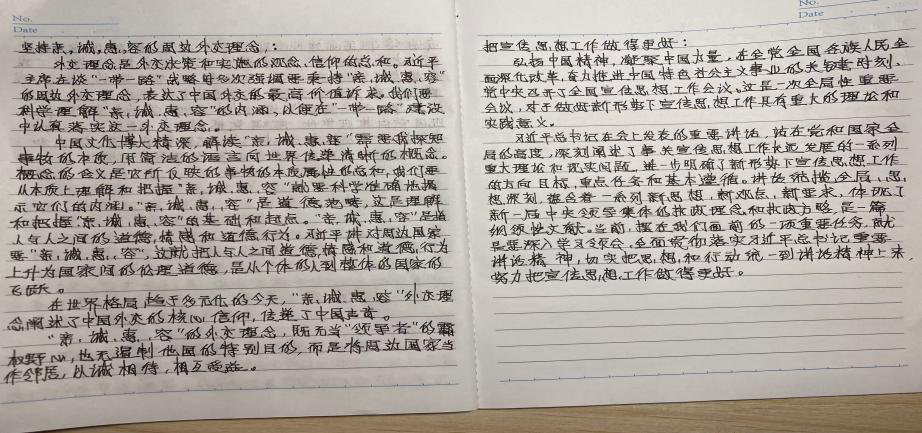 No.
Date
坚持亲,诚,惠,容的周边外交理念,:
外交理念是外交决策和实施的观念、信仰的总和。习近平
主席在谈“一带一路”战略时多次强调要秉持“亲、诚、惠、容”
的周边外交理念,表达了中国外交的最高价值诉求。我们要
科学理解“亲、诚、惠、容”的内涵,以便在“一带一路”建设
中认真落实这一外交理念。
中国文化博大精深,解读“亲、诚、惠、容”需要我探知
事物的本质,用简洁的语言向世界传举清晰的概念。
概念的含义是它所反映的事物的本质属性的总和,我们要
从本质上理解和把握“亲、诚、惠、容”就要科学准确地揭
示它们的内涵。“亲、诚、惠、容”是道德范畴,这是理解
和把握“亲、诚、惠、容”的基础和起点。“亲、诚、惠、容”是指
人与人之间的道德,情感和道德行为。习近平讲对周边国家
要“亲、诚、惠、容”,这就把人与人之间道德,情感和道德,行为
上升为国家间的伦理道德,是从个体的人到整体的国家的
飞跃。
在世界格局趋于多元化的今天,“亲、诚、惠、容”外交理
念阐述了中国外交的核心信仰,传递了中国声音。
“亲、诚、惠、容”的外交理念,既无当“领导者”的霸
权野心,也无遏制他国的特别目的,而是将周边国家当
作邻居,以诚相待,相互受益。
No.
Date
把宣传思想工作做得更好:
弘扬中国精神,凝聚中国力量,在全党全国各族人民全
面深化改革,奋力推进中国特色社会主义事业的关键时刻、
党中央召开了全国宣传思想工作会议。这是一次全局性重要
会议,对于做好新形势下宣传思想工作具有重大的理论和
实践意义。
习近平总书记在会上发表的重要讲话,站在党和国家全
局的高度,深刻阐述了事关宣传思想工作长远发展的一系列
重大理论和现实问题,进一步明确了新形势下宣传思想工作
的方向目标,重点任务和基本遵循。讲话统揽全局、思
想深刻,蕴含着一系列新思想,新观点,新要求,体现了
新一届中央领导集体的执政理念和执政方略,是一篇
纲领性文献。当前,摆在我们面前的一项重要任务,就
是要深入学习领会,全面贯彻落实习近平总书记重要
讲话精神,切实把思想,和行动统一到讲话精神上来,
努力把宣传思想工作做得更好。